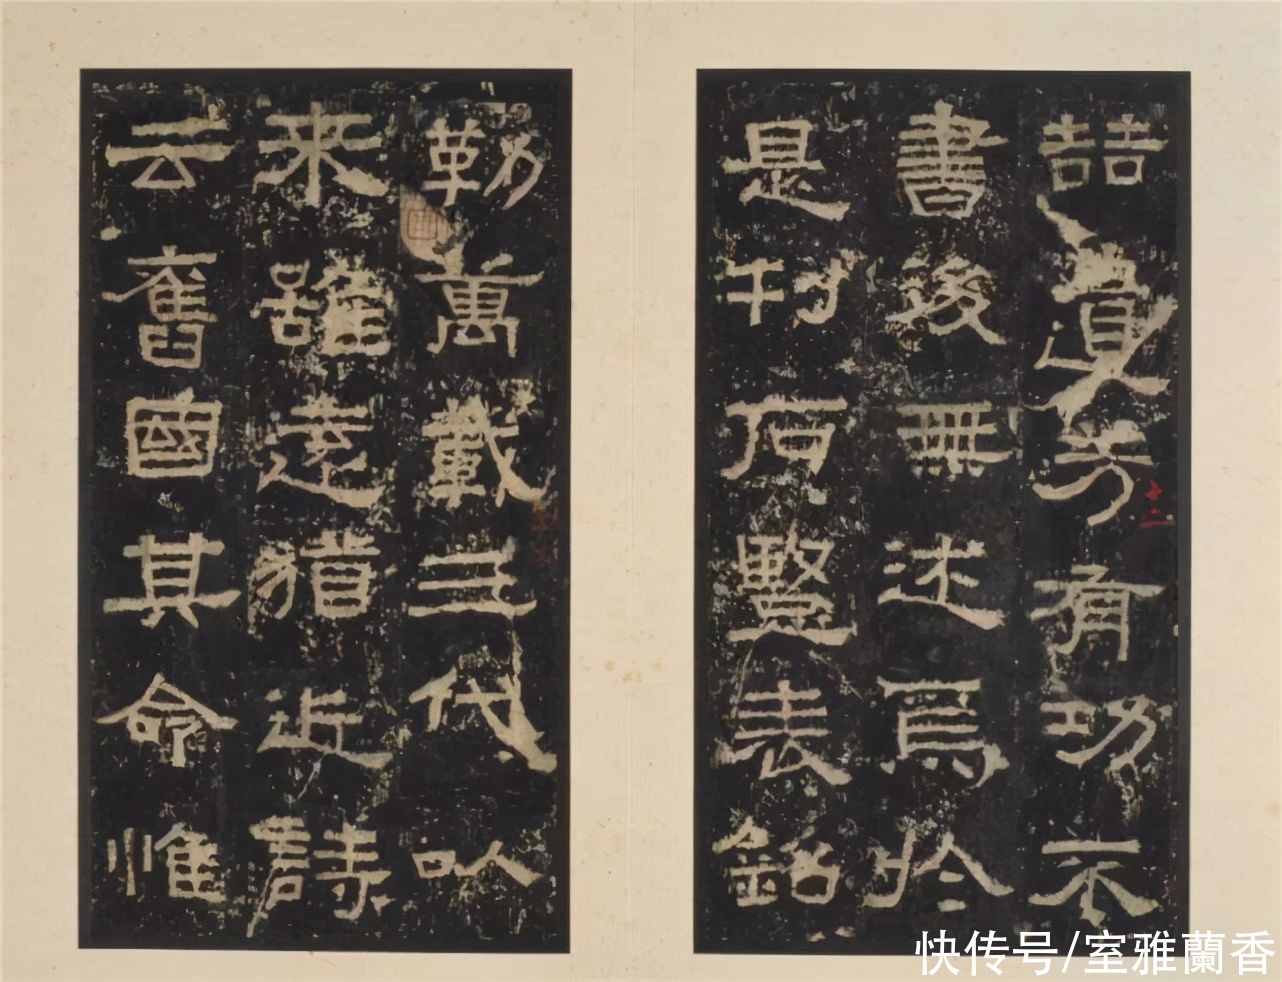 喆遺芳有功不
書後無述焉於
是刊石豎表銘
勒萬載三代以
來雖遠猶近詩
云舊國其命惟
快传号/室雅蘭香